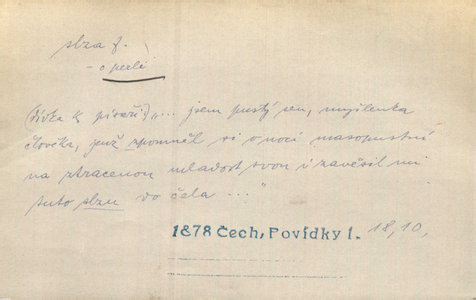 slza f.
– o perli
(dívka k písaři:) „... jsem pustý sen, myšlenka
člověka, jenž zpomněl si o noci masopustní
na ztracenou mladost svou i zavěsil mi
tuto slzu do čela ..."
1878 Čech, Povídky 1. 18,10,